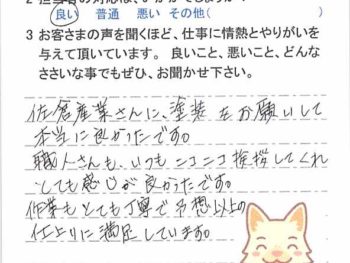 2 担当者の対応は、いかがでしょうか？
良い　普通　悪い　その他（
3 お客さまの声を聞くほど、仕事に情熱とやりがいを
与えて頂いています。 良いこと、悪いこと、どんな
ささいな事でもぜひ、お聞かせ下さい。
佐倉産業さんに、塗装をお願いして
本当に良かったです。
職人さんも、いつもニコニコ挨拶してくれ
とても感じが良かったです。
作業もとても丁寧で予想以上の
仕上りに満足しています。